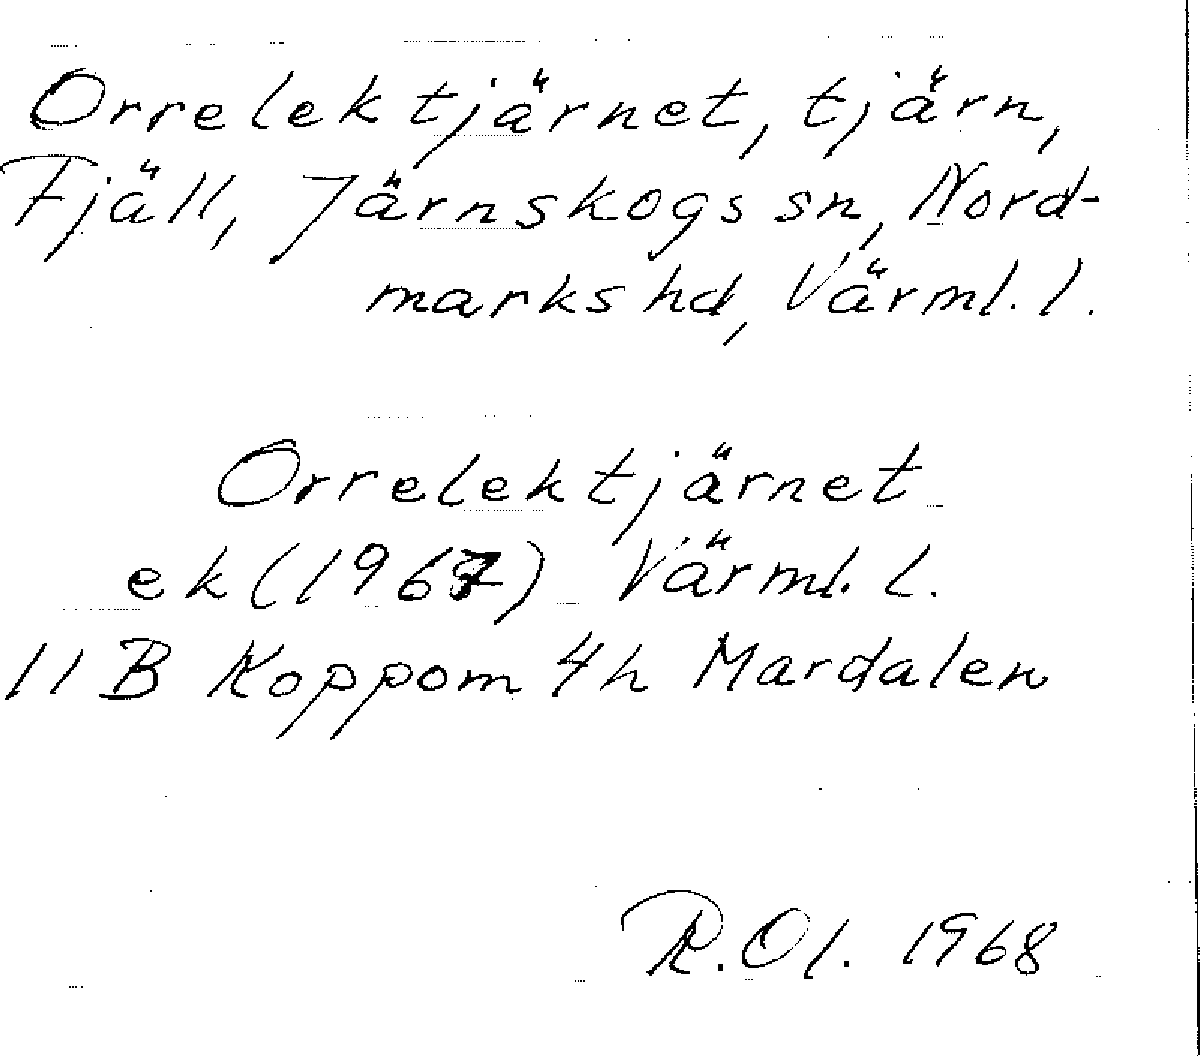 Orrelektjärnet, tjärn,
Fjäll, Järnskogs sn, Nord-
marks hd, Värml. l.
Orrelektjärnet
ek (1967) Värml. l.
11 B Koppom 4h Mardalen
R.Ol. 1968